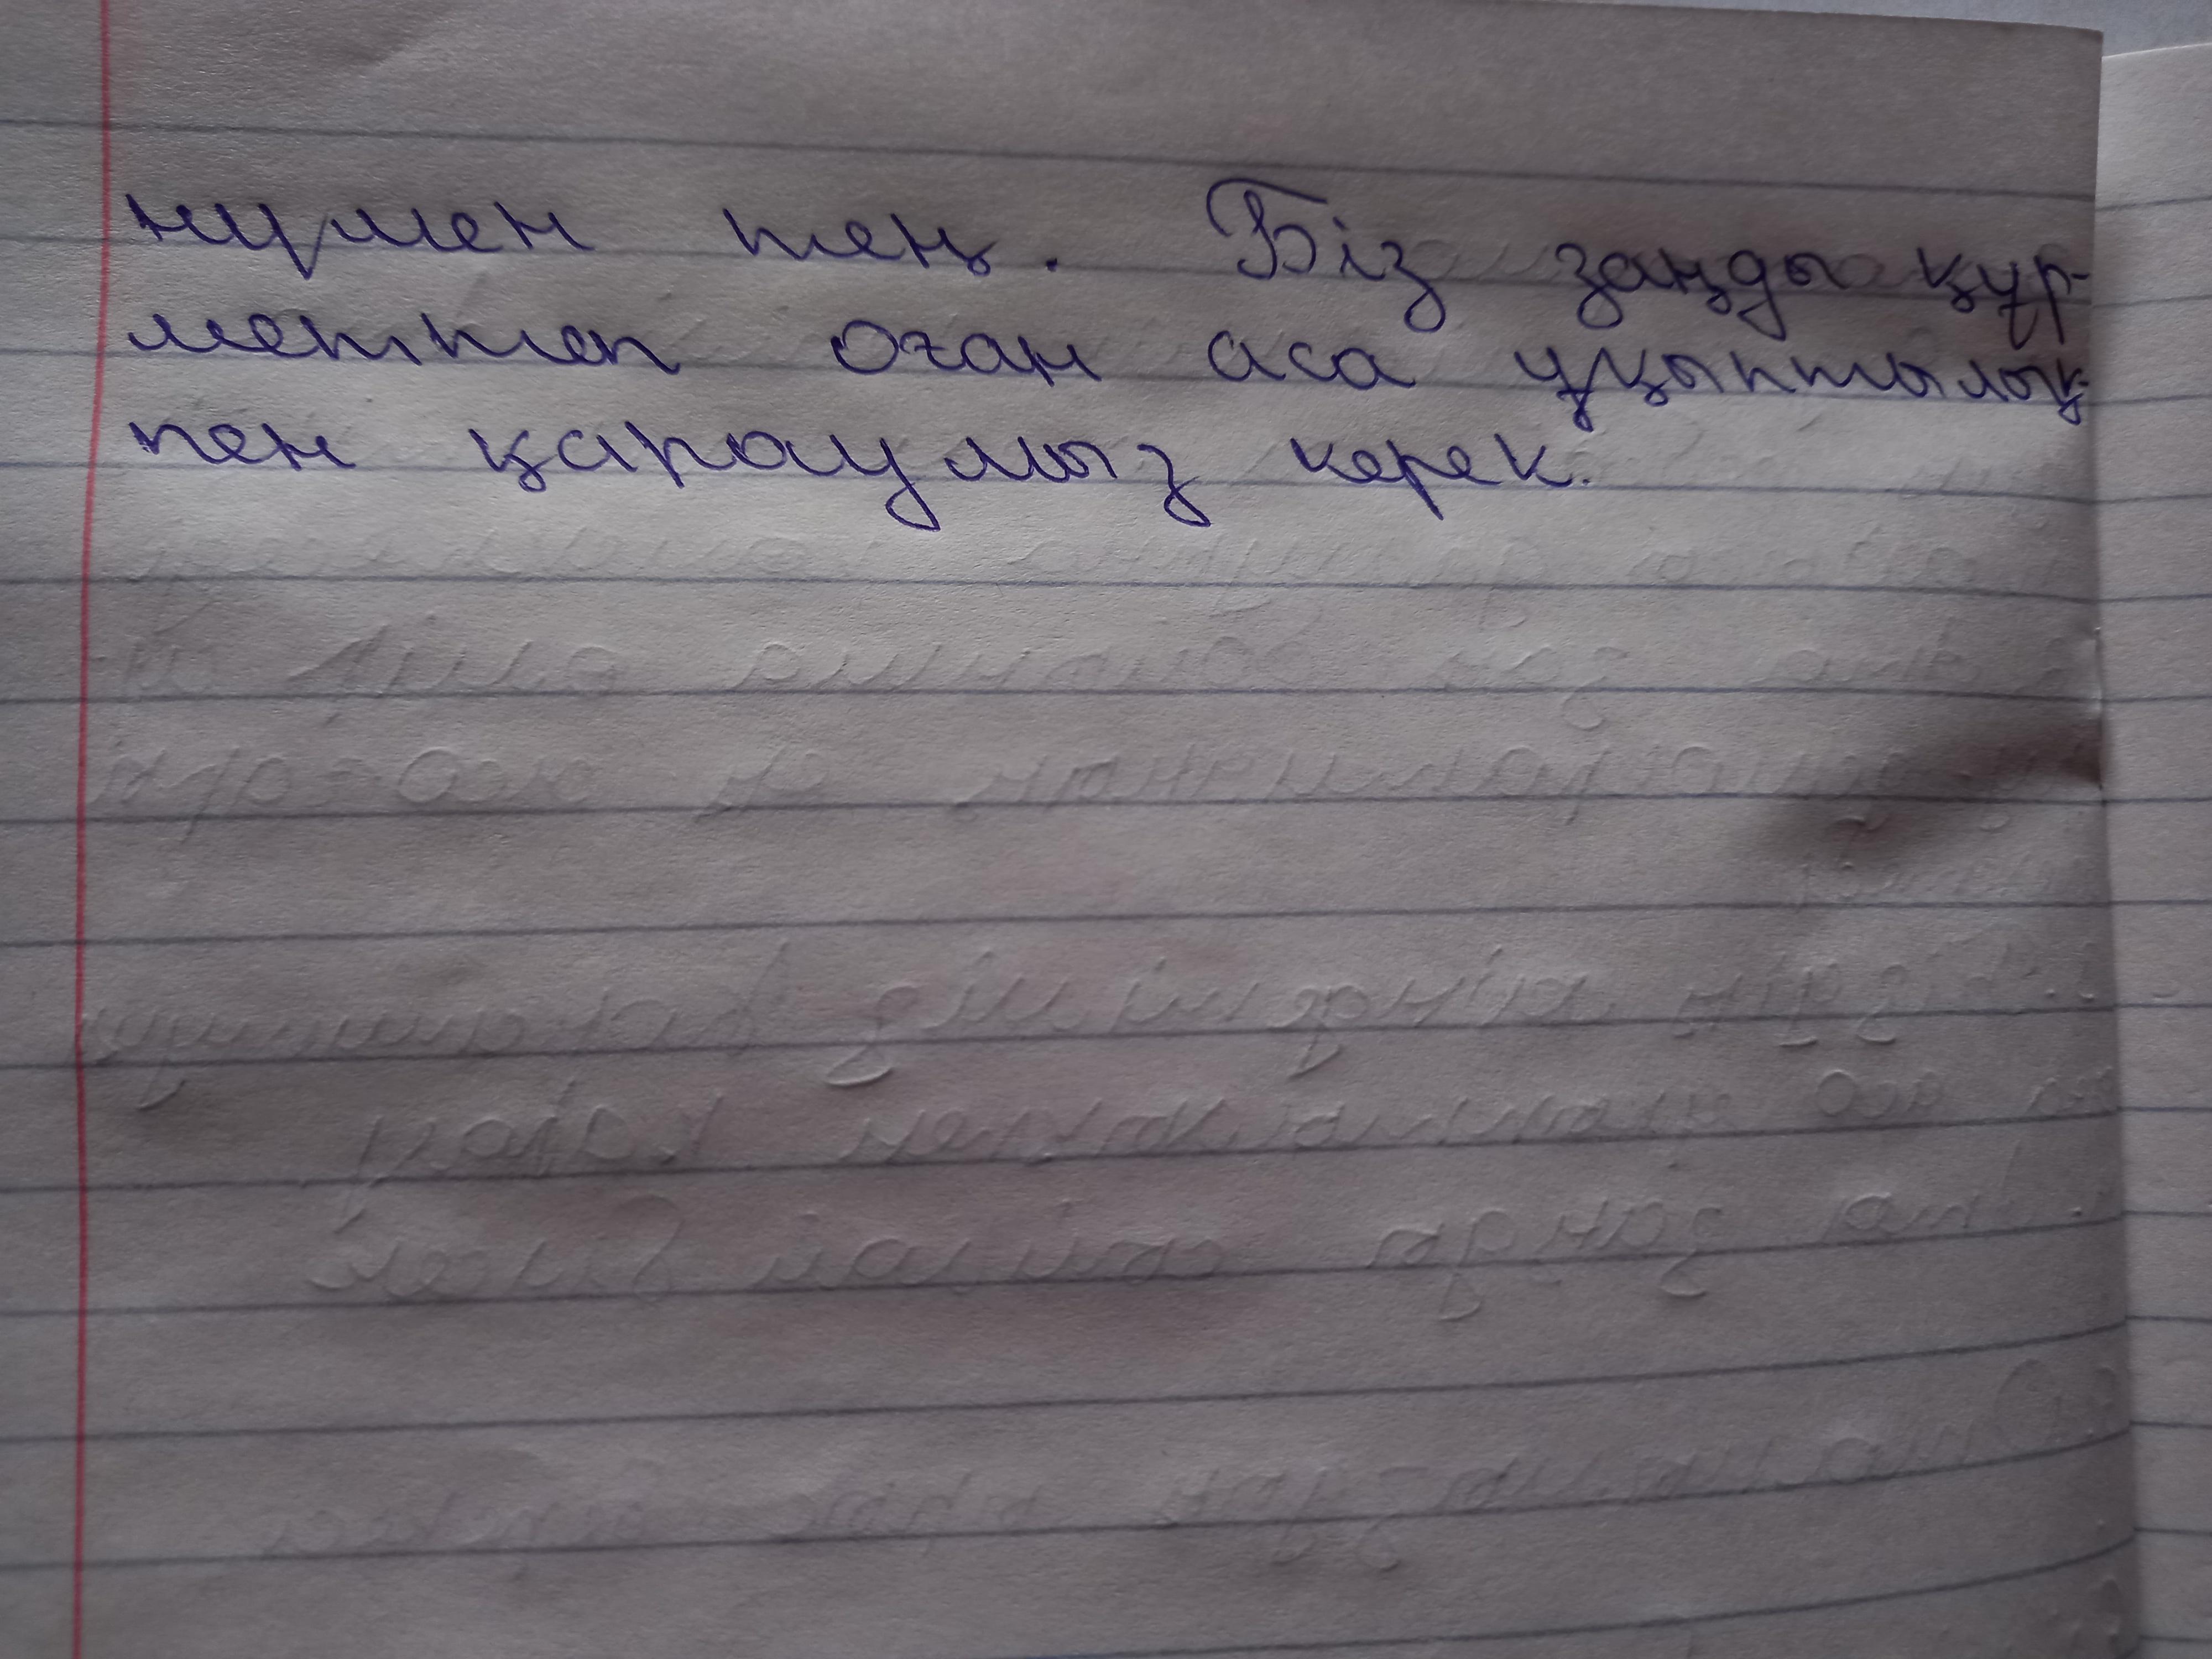 нүмен тең. Біз заңды құр-
меттеп оған аса ұқыптылық-
пен қарауымыз керек.